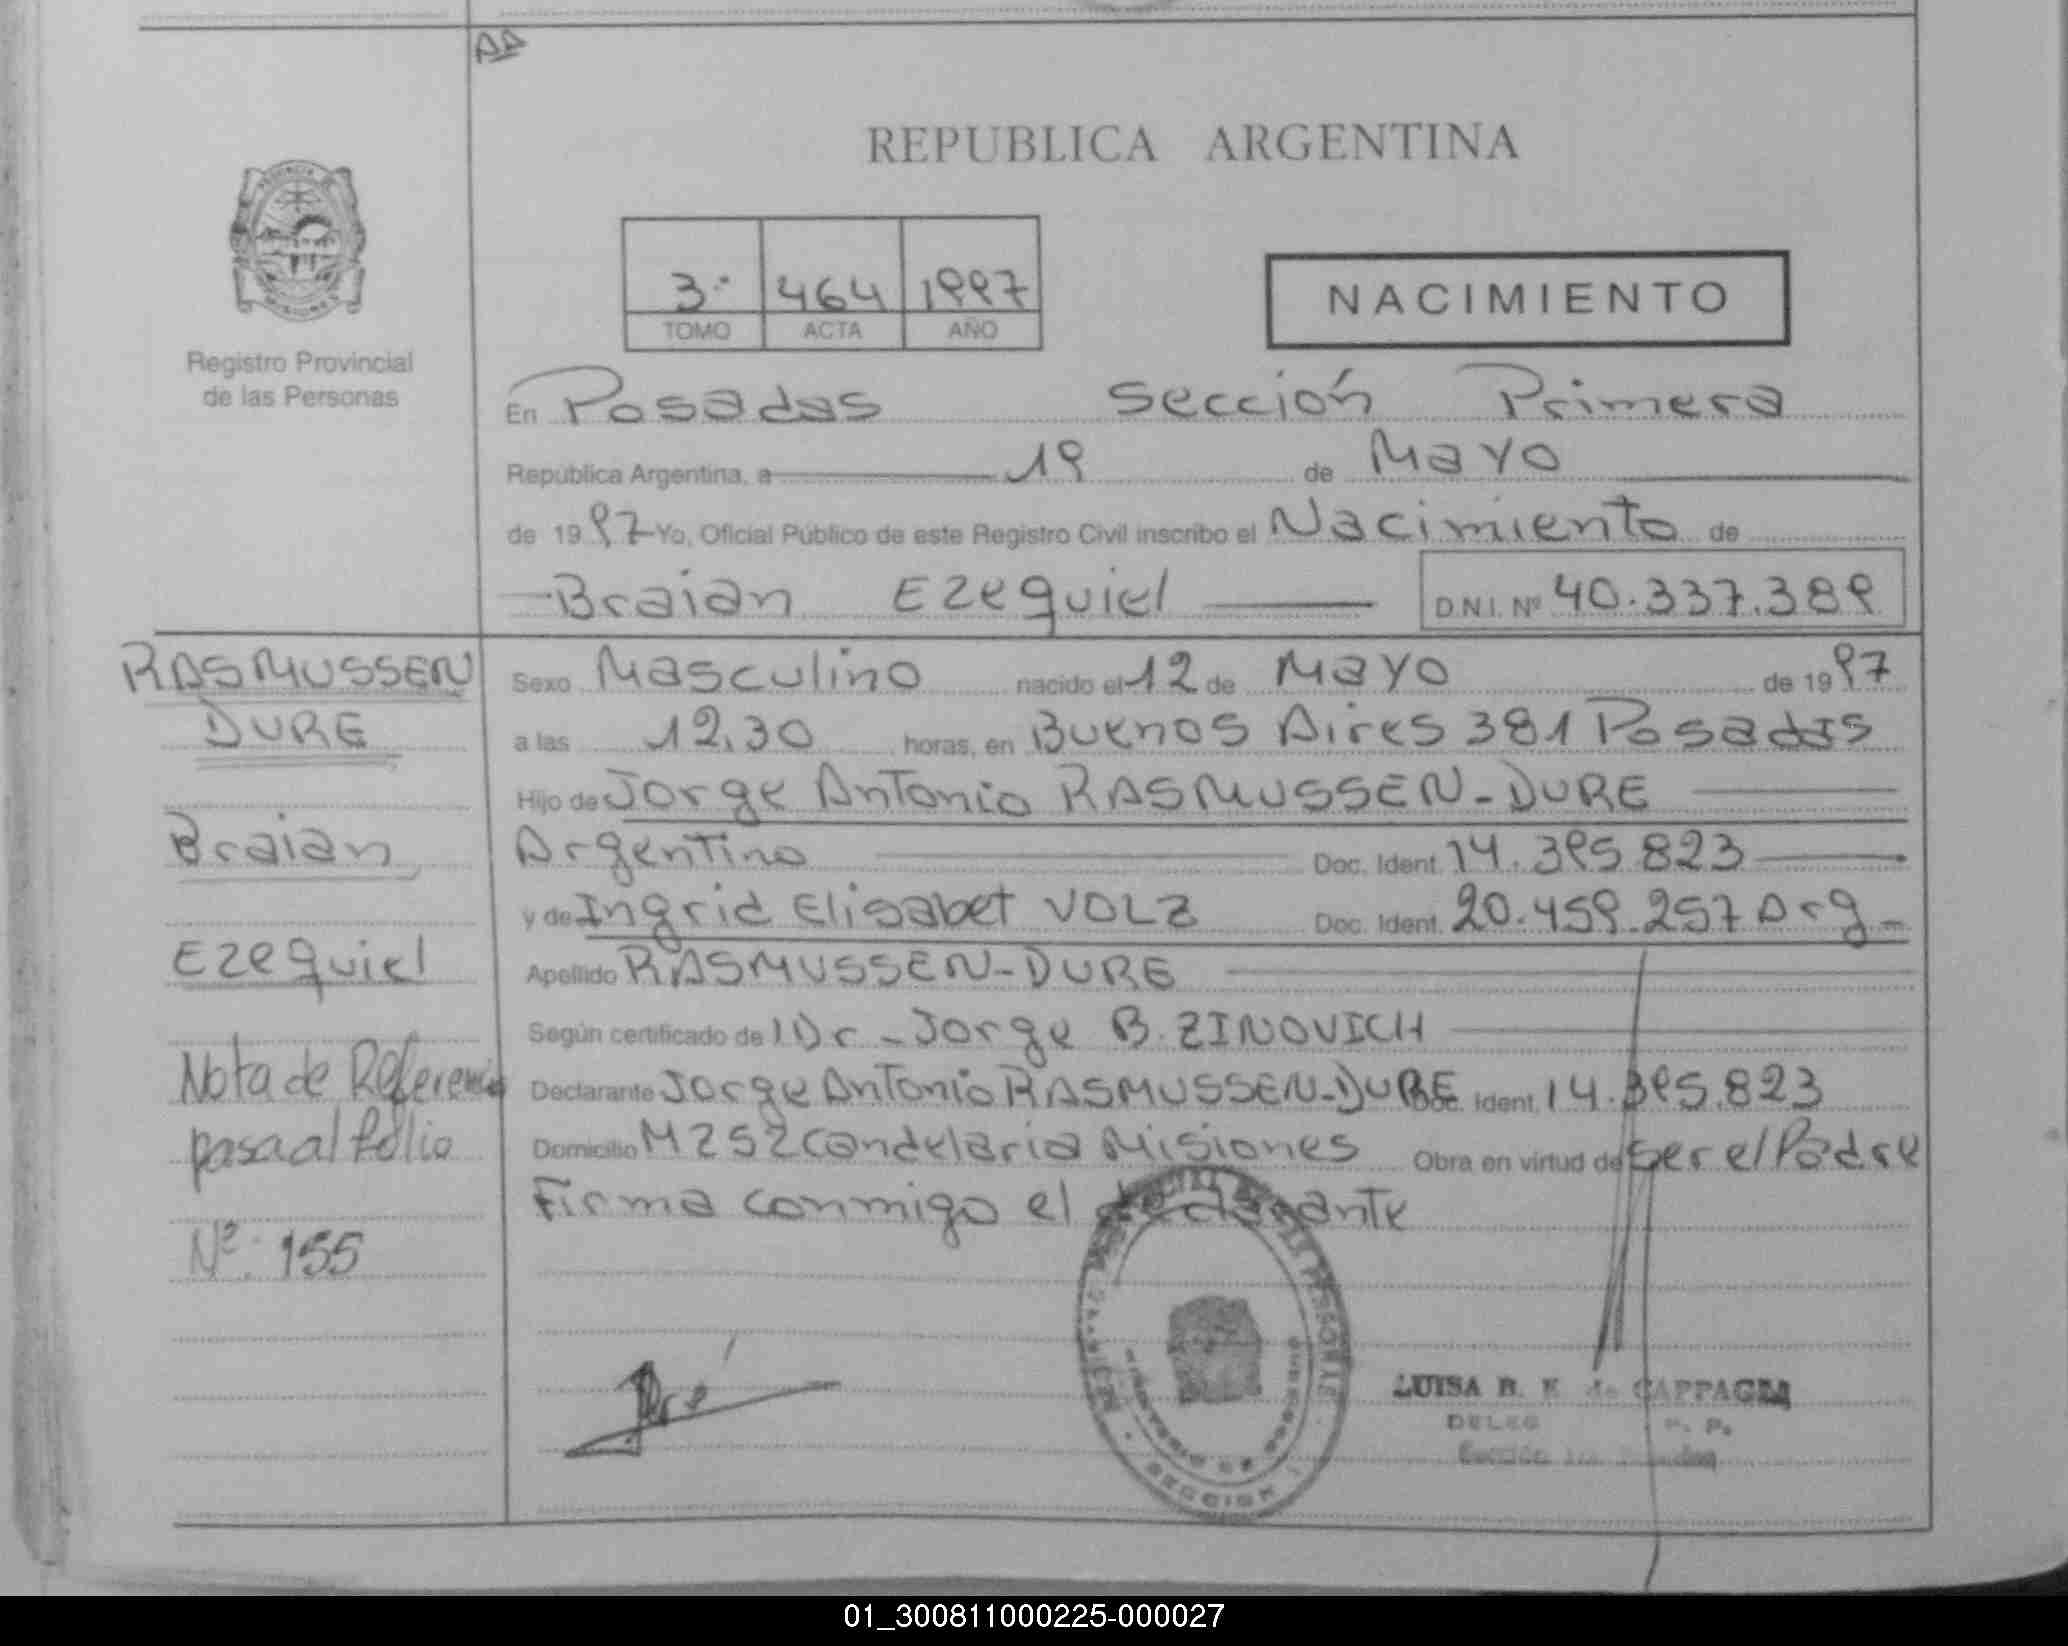 AA
REPUBLICA ARGENTINA
3º 464 1997
TOMO ACTA AÑO
NACIMIENTO
Registro Provincial
de las Personas
En Posadas Sección Primera
República Argentina, a 19 de Mayo
de 1997 Yo, Oficial Público de este Registro Civil inscribo el Nacimiento de
Braian Ezequiel D.N.I. Nº 40.337.389
RASMUSSEN
DURE
Braian
Ezequiel
Nota de Referencia
pasa al folio
Nº: 155
Sexo Masculino nacido el 12 de Mayo de 1997
a las 12,30 horas, en Buenos Aires 381 Posadas
Hijo de Jorge Antonio RASMUSSEN-DURE
Argentino Doc. Ident. 14.395.823
y de Ingrid Elisabet VOLZ Doc. Ident. 20.459.257 Arg-
Apellido RASMUSSEN-DURE
Según certificado de Dr-Jorge B. ZINOVICH
Declarante Jorge Antonio RASMUSSEN-DURE Doc. Ident. 14.395.823
Domicilio MZ52 Candelaria Misiones Obra en virtud de ser el Padre
Firma conmigo el declarante
LUISA B. de CAPPAGLI
DELEG R. P.
Sección
SECCION
01_300811000225-000027